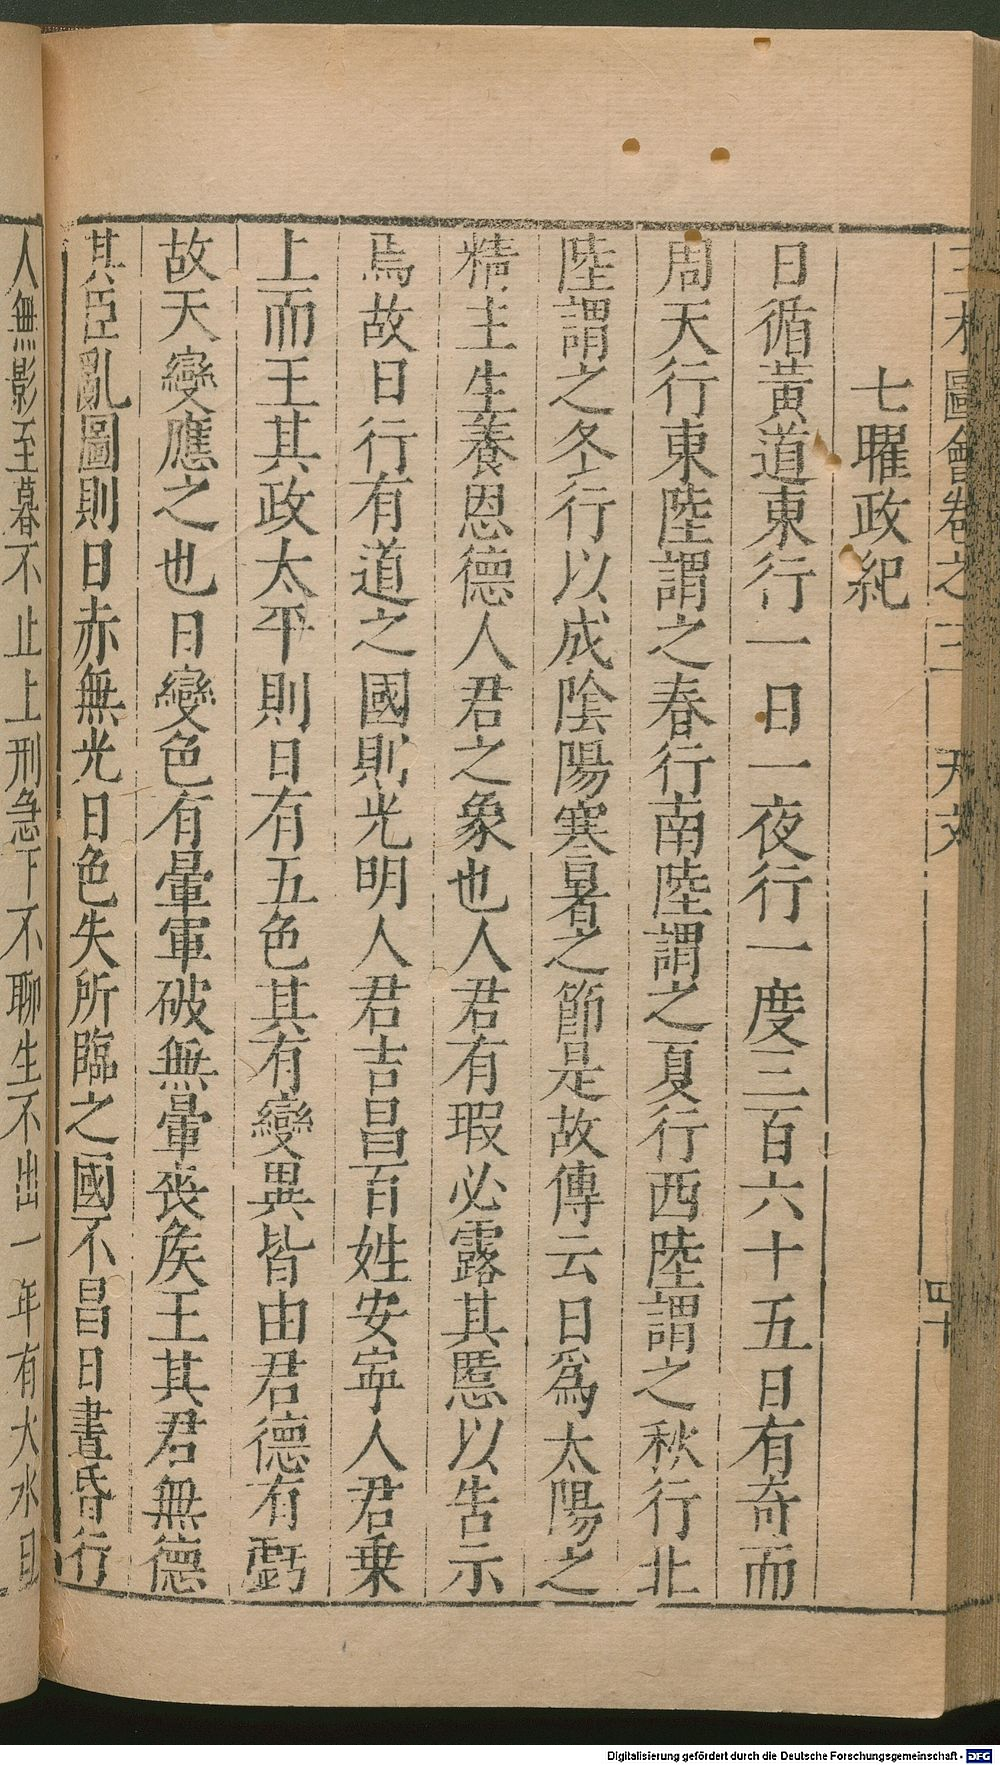 三才圖會卷之三 天文 四十
七曜政紀
日循黃道東行一日一夜行一度三百六十五日有奇而
周天行東陸謂之春行南陸謂之夏行西陸謂之秋行北
陸謂之冬行以成陰陽寒暑之節是故傳云日爲太陽之
精主生養恩德人君之象也人君有瑕必露其慝以告示
焉故日行有道之國則光明人君吉昌百姓安寧人君乗
上而王其政太平則日有五色其有變異皆由君德有虧
故天變應之也日變色有暈軍破無暈喪矦王其君無德
其臣亂圖則日赤無光日色失所臨之國不昌日晝昏行
人無影至暮不止上刑急下不聊生不出一年有大水日
Digitalisierung gefördert durch die Deutsche Forschungsgemeinschaft - DFG